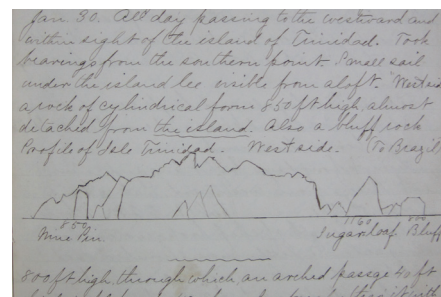 Jan 30. All day passing to the westward and
within sight of the island of Trinidad. Took
bearings from the southern point. Small sail
under the island lee visible from aloft. West side
a rock of cylindrical form 850 ft high, almost
detached from the island. Also a bluff rock
Profile of Isle Trinidad. West side. To Brazil
850 1160 800
Nine Pin. Sugarloaf Bluff
800 ft high, through which an arched passge 40 ft